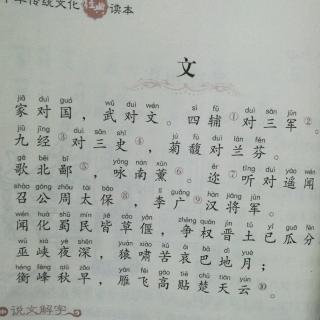 传统文化经典读本
文
jiā duì guó wǔ duì wén sì fǔ duì sān jūn
家对国，武对文。四辅①对三军②。
jiǔ jīng duì sān shǐ jú fù duì lán fēn
九经③对三史④，菊馥对兰芬。
gē běi bǐ yǒng nán xūn ěr tīng duì yáo wén
歌北鄙⑤，咏南薰⑥。迩⑦听对遥闻
shào gōng zhōu tài bǎo lǐ guǎng hàn jiāng jūn
召公周太保⑧，李广⑨汉将军。
wén huà shǔ mín jiē cǎo yǎn zhēng quán jìn tǔ yǐ guā fēn
闻化蜀民皆草偃，争权晋土已瓜分
wū xiá yè shēn yuán xiào kǔ āi bā dì yuè
巫峡夜深，猿啸苦哀巴地月；
héng fēng qiū zǎo yàn fēi gāo tiē chǔ tiān yún
衡峰秋早，雁飞高贴楚天云⑩。
说文解字